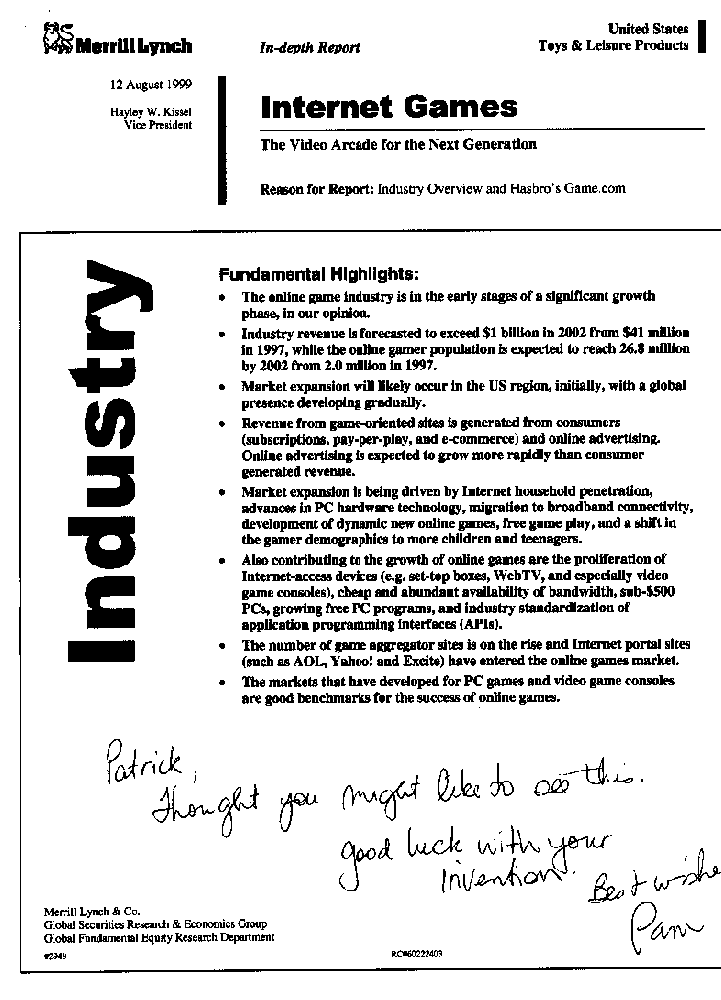 Merrill Lynch
In-depth Report
United States
Toys & Leisure Products
12 August 1999
Hayley W. Kissel
Vice President
Internet Games
The Video Arcade for the Next Generation
Reason for Report: Industry Overview and Hasbro's Game.com
Industry
Fundamental Highlights:
• The online game industry is in the early stages of a significant growth
phase, in our opinion.
• Industry revenue is forecasted to exceed $1 billion in 2002 from $41 million
in 1997, while the online gamer population is expected to reach 26.8 million
by 2002 from 2.0 million in 1997.
• Market expansion will likely occur in the US region, initially, with a global
presence developing gradually.
• Revenue from game-oriented sites is generated from consumers
(subscriptions, pay-per-play, and e-commerce) and online advertising.
Online advertising is expected to grow more rapidly than consumer
generated revenue.
• Market expansion is being driven by Internet household penetration,
advances in PC hardware technology, migration to broadband connectivity,
development of dynamic new online games, free game play, and a shift in
the gamer demographics to more children and teenagers.
• Also contributing to the growth of online games are the proliferation of
Internet-access devices (e.g. set-top boxes, WebTV, and especially video
game consoles), cheap and abundant availability of bandwidth, sub-$500
PCs, growing free PC programs, and industry standardization of
application programming interfaces (APIs).
• The number of game aggregator sites is on the rise and Internet portal sites
(such as AOL, Yahoo! and Excite) have entered the online games market.
• The markets that have developed for PC games and video game consoles
are good benchmarks for the success of online games.
Patrick,
Thought you might like to see this.
good luck with your
invention.
Best wishe
Pam
Merrill Lynch & Co.
Global Securities Research & Economics Group
Global Fundamental Equity Research Department
#2949
RC#60222403